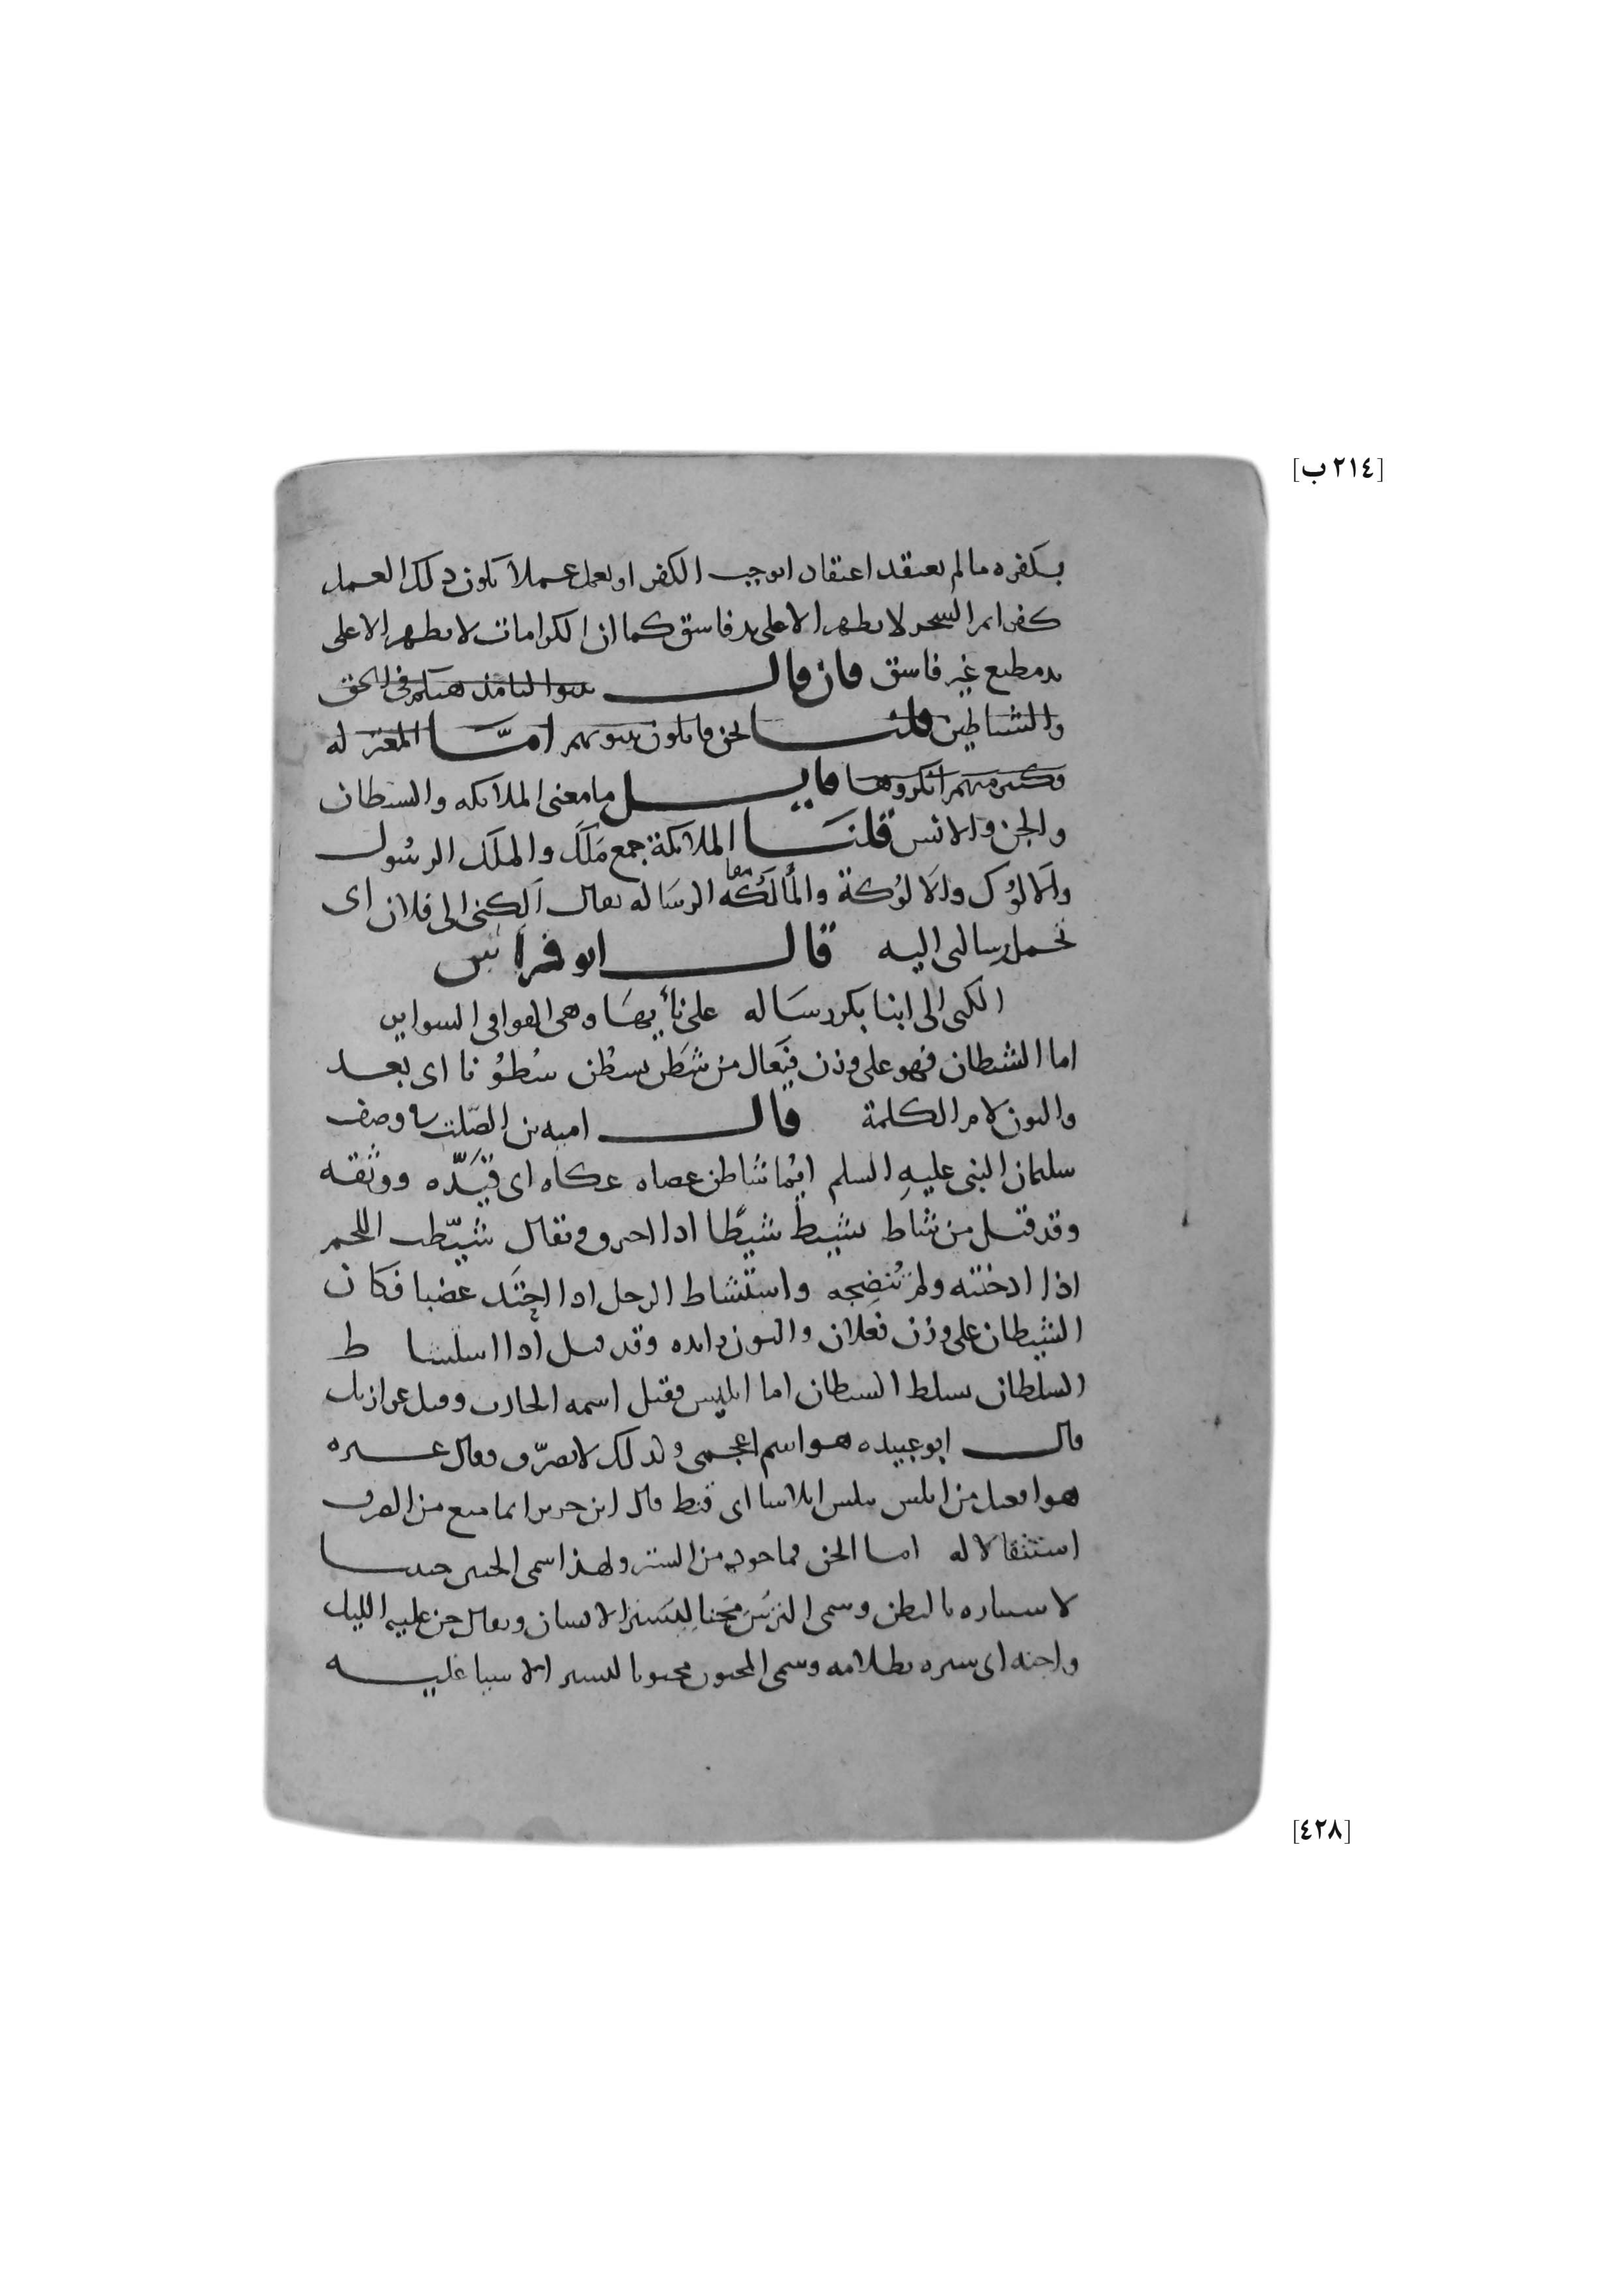 [٢١٤ ب]
بكفره ما لم يعتقد اعتقادا يوجب الكفر او يعمل عملا يكون ذلك العمل
كفرا ثم السحر لا يظهر الا على يد فاسق كما ان الكرامات لا يظهر الا على
يد مطيع غير فاسق فان قال بينوا لنا مذهبكم في الجن
والشياطين قلنا الجن قايلون بثبوتهم امّا المعتزله
وكثير منهم انكروها فان قيل ما معنى الملايكه والشيطان
والجن والانس قلنا الملائكة جمع مَلَك والملَك الرسُول
والالوُك والالوُكة والمألَكَه الرسَاله يقال اَلِكني الى فلان اى
تحمل رسالتى اليه قال ابو فراس
الكنى الى ابنا بكر رسَاله على نأيهَا وهى القوافى السواير
اما الشيطان فهو على وزن فَيعَال من شَطَن يشطُن شُطُونا اى بعد
والنون لام الكلمة قال اميه بن الصّلت وصف
سليمان النبى عليهِ السلم ايمُا شاطن عصاه عكاه اى قيَّده ووثقه
وقد قيل من شاط يشيط شيطًا اذا احترق ويقال شيّطت اللحم
اذا ادخنته ولم تُنضجه واستشاط الرجل اذا احتَد غضبا فكان
الشيطان على وزن فَعلان والنون زايده وقد قيل اذا استشاط
السلطان تسلط الشيطان اما ابليس فقيل اسمه الحارث وقيل عزازيل
قال ابو عبيده هو اسم اعجمى ولذلك لا يصرّف وقال غيره
هو افعيل من ابلس يبلس ابلاسا اى قنط قال ابن جرير انما منع من الصرف
استثقالا له اما الجن فماخوذ من الستر ولهذا سمى الجنين جنينا
لاستتاره بالبطن وسمى الترسُ مِجَنا لِيَستر الانسان ويقال جن عليه الليل
واجنه اى ستره بظلامه وسمى المجنون مجنونا لتستر الاشيا عليه
[٤٢٨]